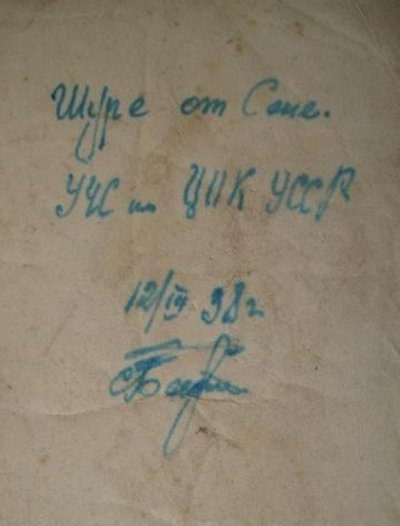 Шуре от Сони.
УЧС ЦИК УССР
12/III 38 г